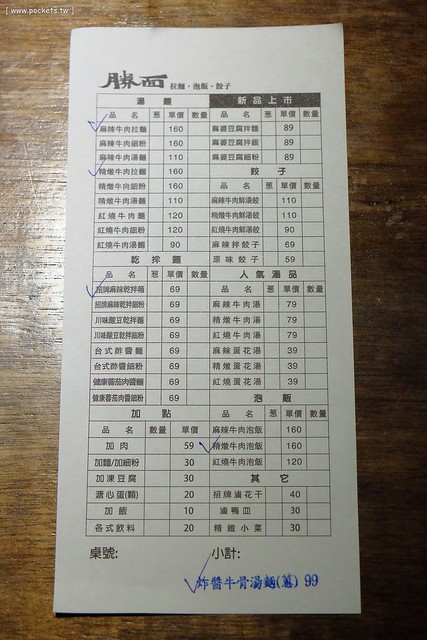 [ www.pockets.tw ]
勝面 拉麵・泡飯・餃子
湯麵
品名 蔥 單價 數量
麻辣牛肉拉麵 160
麻辣牛肉細粉 160
麻辣牛肉湯麵 110
精燉牛肉拉麵 160
精燉牛肉細粉 160
精燉牛肉湯麵 110
紅燒牛肉麵 120
紅燒牛肉細粉 120
紅燒牛肉湯麵 90
乾拌麵
品名 蔥 單價 數量
招牌麻辣乾拌麵 69
招牌麻辣乾拌細粉 69
川味酸豆乾拌麵 69
川味酸豆乾拌細粉 69
台式酢醬麵 69
台式酢醬細粉 69
健康蕃茄肉醬麵 69
健康蕃茄肉醬細粉 69
加點
品名 數量 單價
加肉 59
加麵/加細粉 30
加凍豆腐 30
溏心蛋(顆) 20
加飯 10
各式飲料 20
新品上市
品名 蔥 單價 數量
麻婆豆腐拌麵 89
麻婆豆腐拌飯 89
麻婆豆腐細粉 89
餃子
品名 蔥 單價 數量
麻辣牛肉鮮湯餃 110
精燉牛肉鮮湯餃 110
紅燒牛肉鮮湯餃 90
麻辣拌餃子 69
原味餃子 59
人氣湯品
品名 蔥 單價 數量
麻辣牛肉湯 79
精燉牛肉湯 79
紅燒牛肉湯 79
麻辣蛋花湯 39
精燉蛋花湯 39
紅燒蛋花湯 39
泡飯
品名 蔥 單價 數量
麻辣牛肉泡飯 160
精燉牛肉泡飯 160
紅燒牛肉泡飯 120
其它
招牌滷花干 40
滷鴨皿 30
精緻小菜 30
桌號: 小計:
炸醬牛骨湯麵(蔥) 99